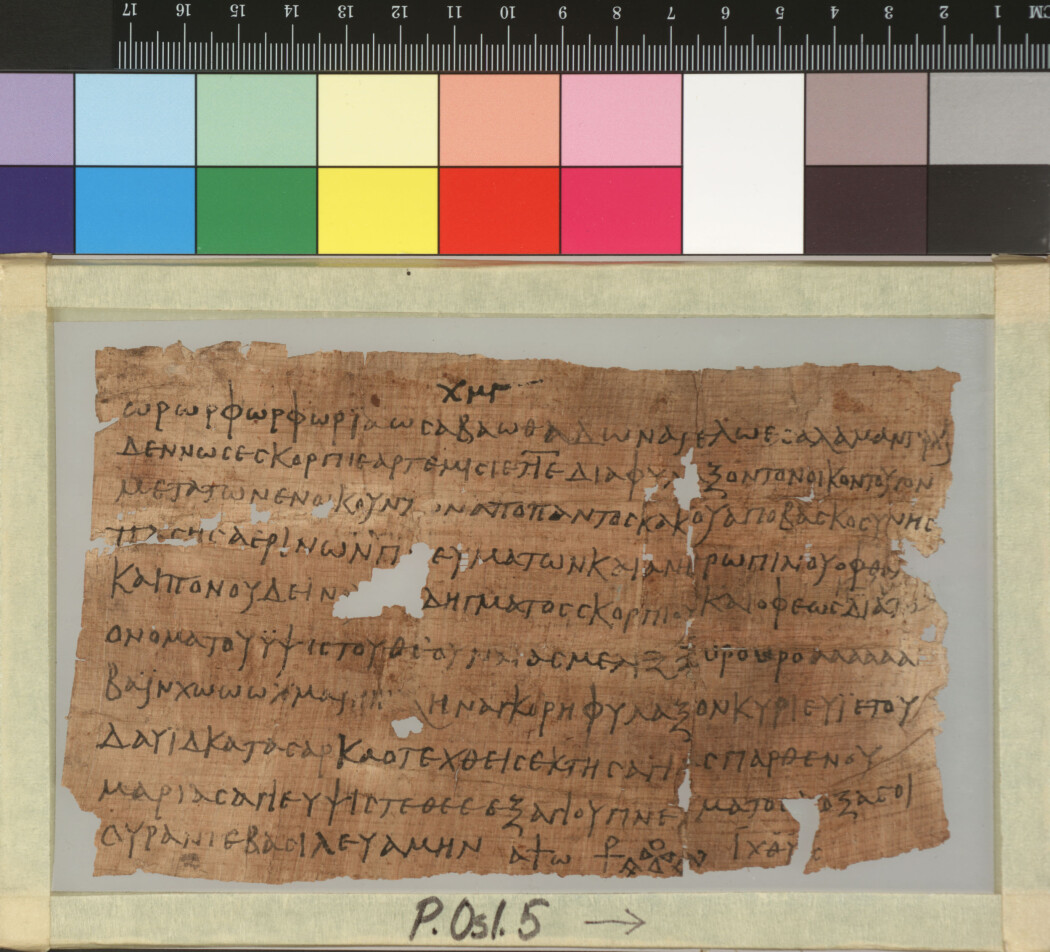 CM 1 2 3 4 5 6 7 8 9 10 11 12 13 14 15 16 17
χμγ
ωρωρφωρφωρϊαωσαβαωθαδωναϊελωεσαλαμαν
δεννωσεσκορπιεαρτεμισιε τ̅ι̅ε̅ διαφυλαξοντονοικοντουτον
μετατωνενοικουντωνα̣ποπαντοσκακουαποβασκοσυνησ
πασησαερινωνπνευματωνκαιανθρωπινουοφθαλ
καιπονουδεινουδηγματοσσκορπιουκαιοφεωσδιατο
ονοματουϋψιστουθεουμελχξξυρουρο αααααα
βαϊνχωωωχ
φυλαξονκυριευϊετου
δαυϊδκατασαρκαοτεχθεισεκτησαγιασπαρθενου
μαριασαγιευψιστεθεεεξαγιουπνευματοσδοξασοι
ουρανιεβασιλευαμην α☩ω ⳨ ϊχθυσ
P. Osl. 5 →